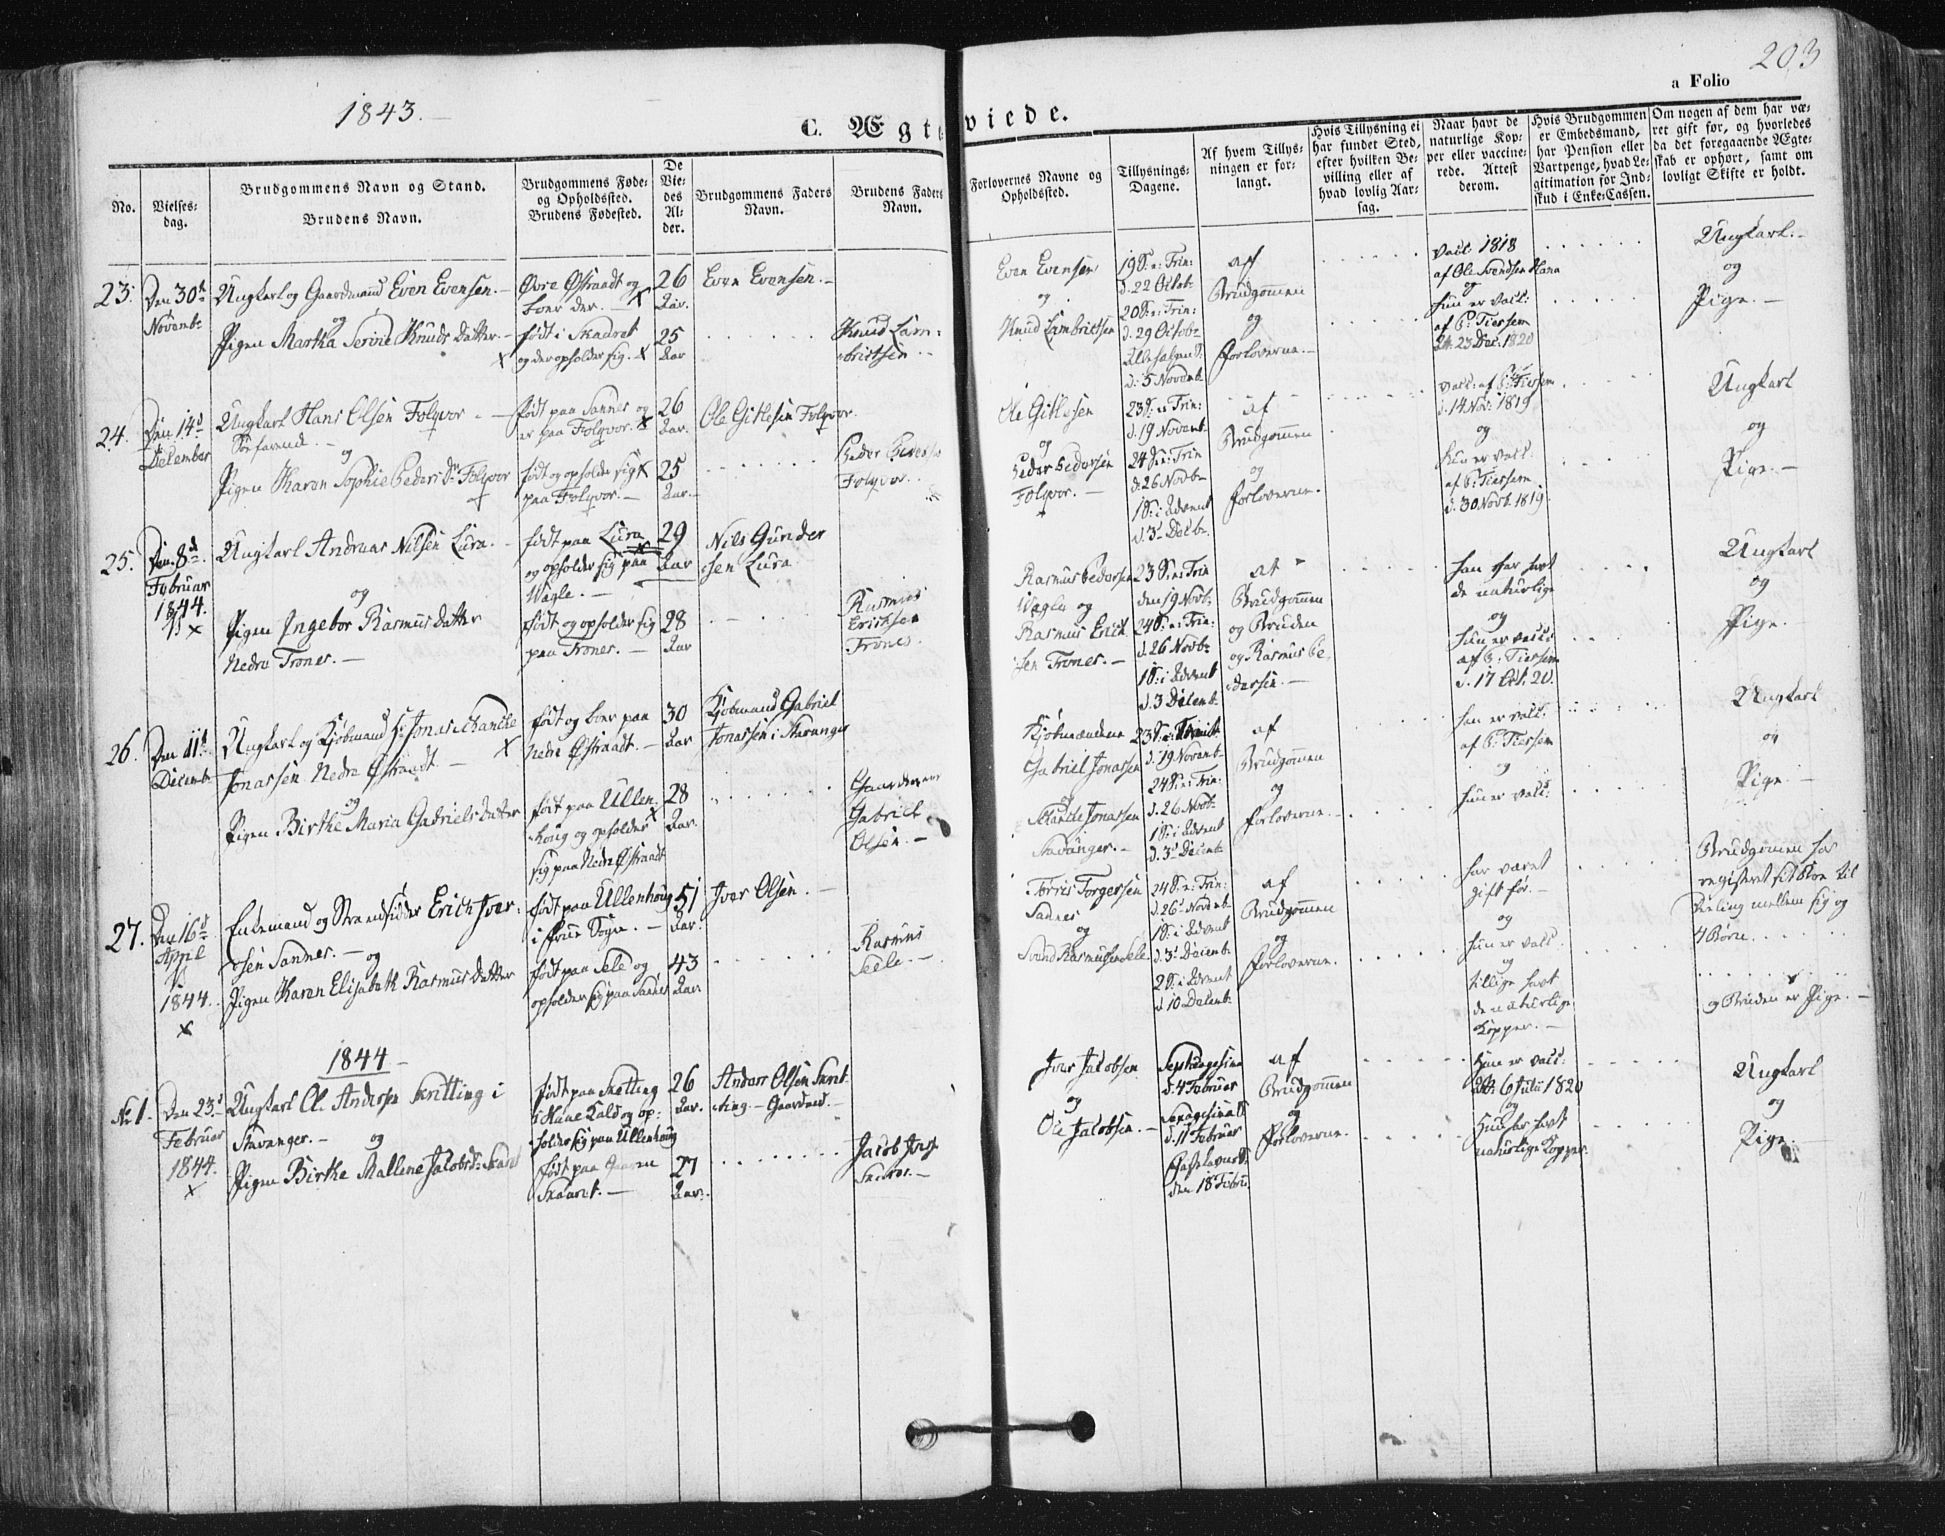 203
a Folio
1843.
C. Ægteviede.
No.
Vielses-
dag.
Brudgommens Navn og Stand.
Brudens Navn.
Brudgommens Føde-
og Opholdssted.
Brudens Fødested.
De
Vie-
des
Al-
der.
Brudgommens Faders
Navn.
Brudens Faders
Navn.
Forlovernes Navne og
Opholdssted.
Tillysnings-
Dagene.
Af hvem Tillys-
ningen er for-
langt.
Hvis Tillysning ei
har fundet Sted,
efter hvilken Be-
villing eller af
hvad lovlig Aar-
sag.
Naar havt de
naturlige Kop-
per eller vaccine-
rede. Attest
derom.
Hvis Brudgommen
er Embedsmand,
har Pension eller
Vartpenge, hvad Le-
gitimation for Ind-
skud i Enke-Cassen.
Om nogen af dem har væ-
ret gift før, og hvorledes
da det foregaaende Ægte-
skab er ophørt, samt om
lovligt Skifte er holdt.
23.
Den 30te
Novembr
Ungkarl og Gaardmand Even Evensen.
og
Pigen Martha Serine Knuds Datter.
Øvre Østraadt og
boer der.
født i Skadret
og der opholder sig.
26
Aar.
25
Aar
Even Evensen.
Knud Lam-
brictsen
Even Evensen
og
Knud Lambrictsen
19 S. e: Trin:
d. 22 Octob:
20 S. e: Trin:
d. 29 Octob:
Allehelgen S.
d. 5 Novemb.
af
Brudgommen
og
Forloverne.
Vacc: 1818
af Ole Svendsen Hana
og
hun er vacc:
af P: Tiersem
Att: 23 Dec: 1820
Ungkarl.
og
Pige.
24.
Den 14d
December
Ungkarl Hans Olsen Folqvor
Søefarend.
og
Pigen Karen Sophie Peders Dr Folqvor
født paa Sannes og
er paa Folqvor.
født og opholder sig
paa Folqvor.
26
Aar.
25
Aar.
Ole Gitlesen Folqvor.
Folqvor.
Ole Gitlesen
og
Peder Pedersen
Folqvor.
23 S. e: Trin:
d. 19 Novemb.
24 S. e: Trin
d: 26 Novb
1 S: i Advent
d. 3d Decbr.
af
Brudgommen
og
Forloverne.
vacc: af P: Tiersem
d. 14 Nov: 1819
og
hun er vacc:
af P: Tiersem
d. 30 Novb. 1819.
Ungkarl
og
Pige.
25.
Den 8de
Februar
1844.
Ungkarl Andreas Nilsen Lura.
og
Pigen Ingebor Rasmus Datter
Nedre Trones.
født paa Lura
og opholder sig paa
Vagle.
født og opholder sig
paa Trones.
29
Aar
28
Aar
Nils Gunder
sen Lura
Rasmus
Ericksen
Trones
Rasmus Pedersen
Vagle og
Rasmus Erick
sen Trones.
23 S. e: Trin
den 19 Novb:
24 S. e: Trin:
d. 26 Novb:
1 S: i Advent
d. 3 Decemb.
af
Brudgommen
og Bruden
og Rasmus Pe
dersen.
han har havt
de naturlige
og
hun er vacc:
af P: Tiersem
d. 17 Oct. 20.
Ungkarl
og
Pige.
26.
Den 11t
Decemb.
Ungkarl og Kjøbmand Hr Jonas Schancke
Jonassen Nedre Østraadt.
og
Pigen Birthe Maria Gabriels Datter
født og boer paa
Nedre Østraadt.
født paa Ullen-
houg og opholder
sig paa Nedre Østraadt
30
Aar
28
Aar.
Kjøbmand Gabriel
Jonassen i Stavanger
Gabriel
Olsen.
Kjøbmændene
Gabriel Jonassen
og
Schancke Jonassen
Stavanger.
23 S. e: Trinit
d. 19 Novemb.
24 S. e: Trin:
d. 26 Novb:
1 S: i Advent
d. 3d Decemb.
af
Brudgommen
og
Forloverne.
han er vacc:
af P: Tiersem
og
hun er vacc:
Ungkarl
og
Pige.
27.
Den 16d
April
1844.
Enkemand og Strandsidder Erich Iver-
sen Sandnes.
og
Pigen Karen Elisabeth Rasmus Datter
født paa Ullenhoug
i Frue Sogn.
født paa Sele og
opholder sig paa Sannes
51
Aar.
43
Aar.
Iver Olsen.
Rasmus
Seele.
Torris Torgersen
Sadnes
og
Svend Rasmussen Sele
24 S. e: Trin:
d. 26 Novemb.
1 S: i Advent
d. 3d Decemb.
2 S: i Advent
d. 10 Decemb.
af
Brudgommen
og
Forloverne.
har været
gift før.
og
hun er vacc.
og
tillige havt
de naturlige
Kopper.
Brudgommen har
registeret sit Boe til
Deeling mellem sig og
4 Børn.
og Bruden er Pige.
1844
No 1.
Den 23d
Februar
1844.
Ungkarl Ol. Andersen Skretting i
Stavanger.
og
Pigen Birthe Mallene Jacobsd: Skaaret
født paa Skretting
i Haaelands og op-
holder sig paa Ullenhoug
født paa Gaaren
Skaaret.
26
Aar.
27
Aar.
Anders Olsen Skret-
ting. Gaardmd.
Jacob Ivers
Iver Jacobsen
og
Ole Jacobsen.
Septuagesima
d. 4 Februar
Sexagesima S.
d. 11 Februar
Fastelavns S.
den 18 Febru.
af
Brudgommen
og
Forloverne.
Han er vacc:
Att: 6 Julii 1820
og
Hun har havt
naturlige Kopper.
Ungkarl
og
Pige.